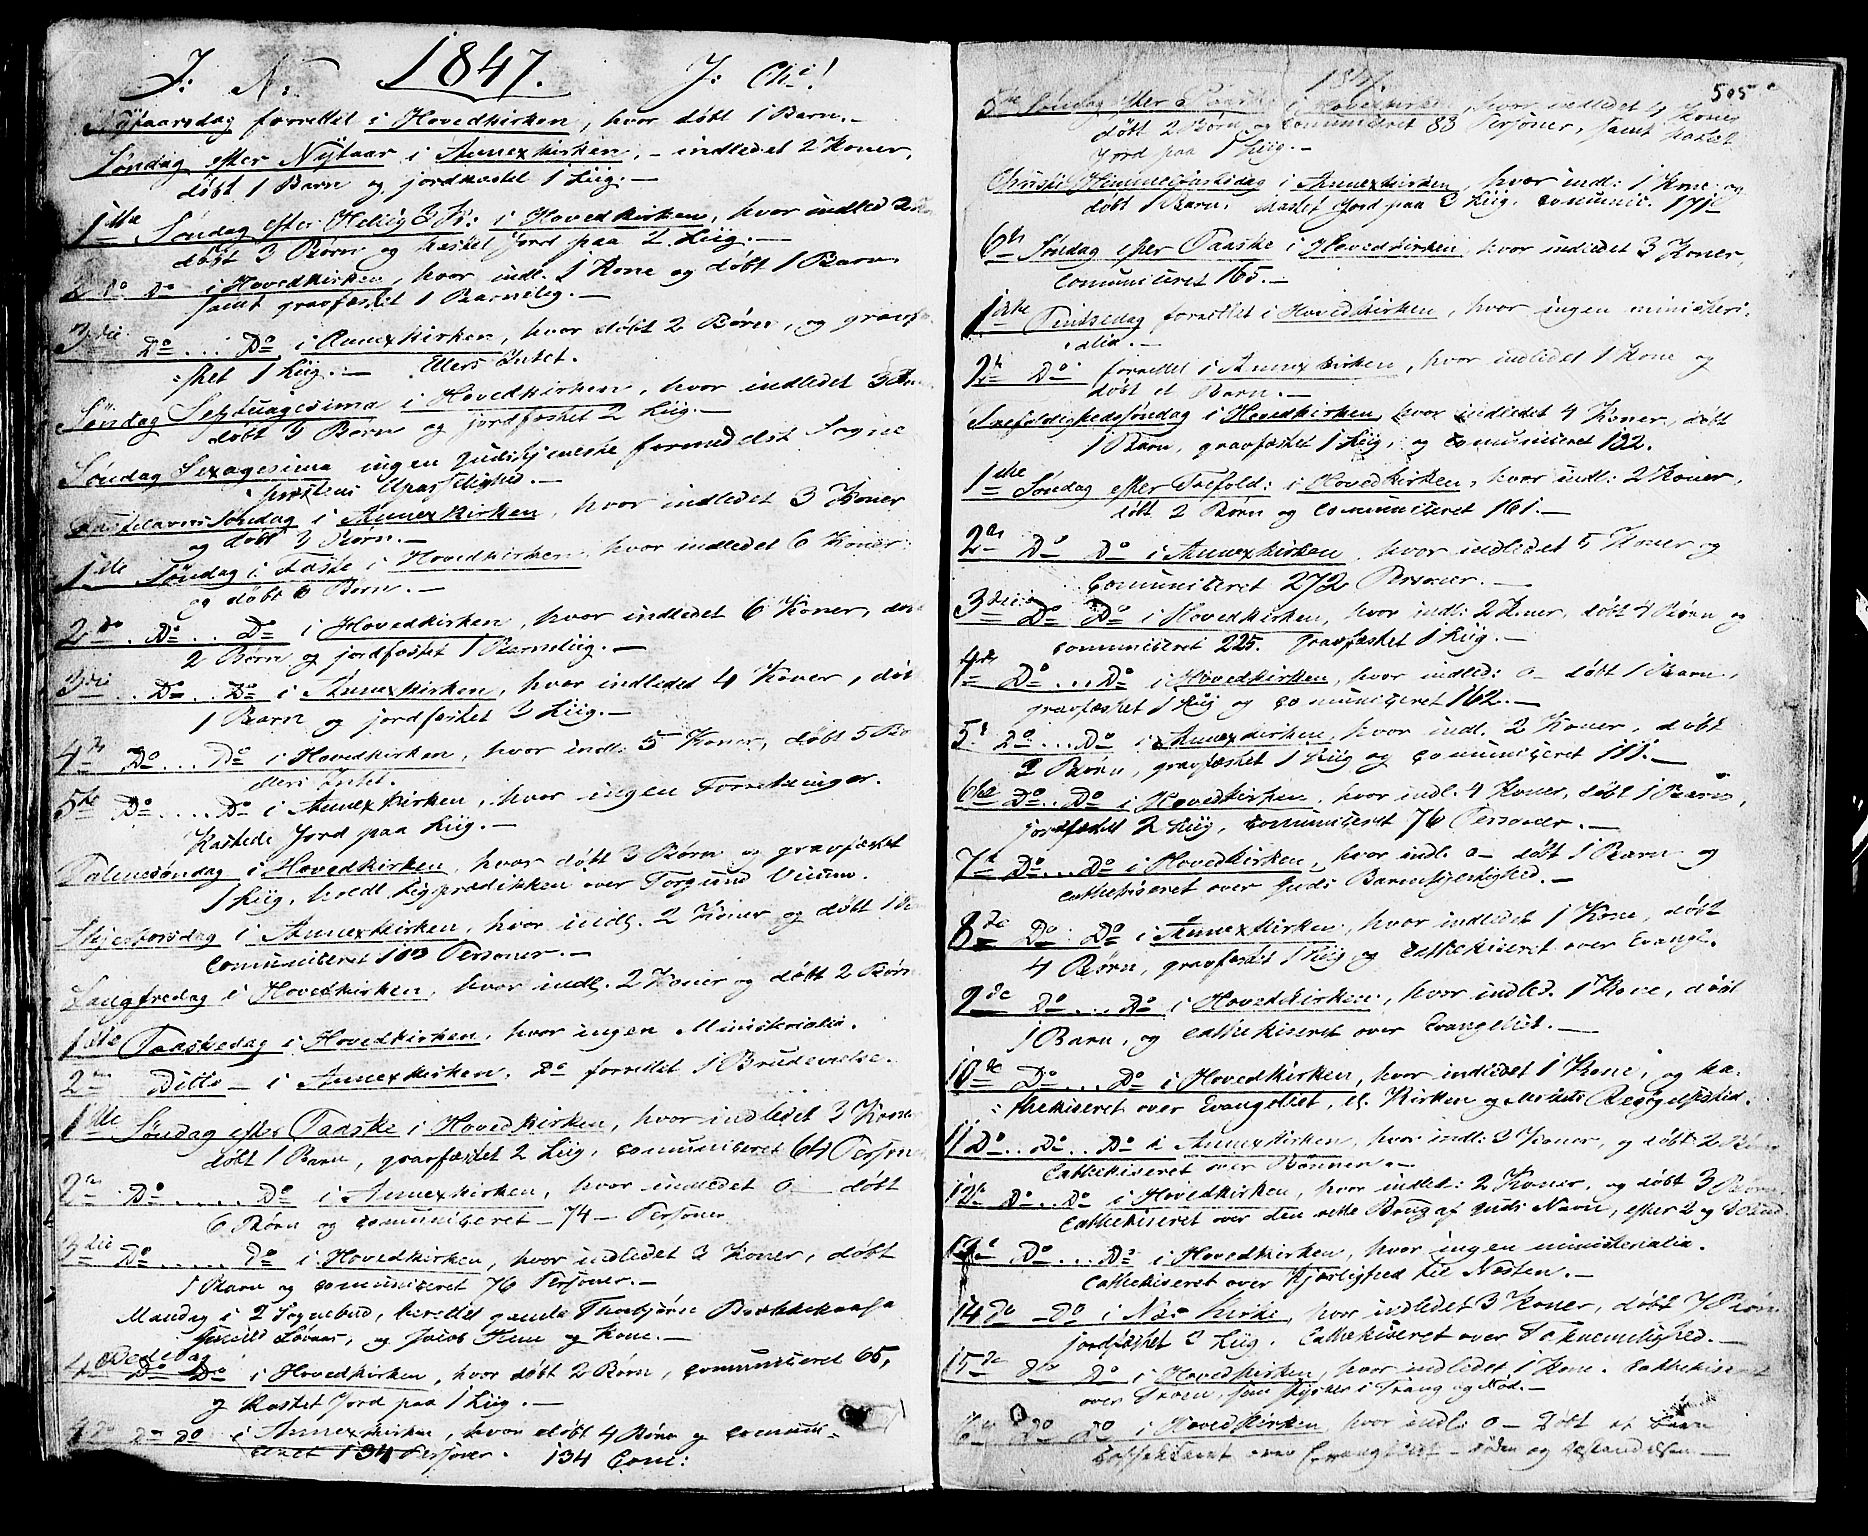 J: N: 1847. J: Chr!
Nytaarsdag forrettet i Hovedkirken, hvor døbt 1 Barn.-
Søndag efter Nytaar i Annexkirken, - indledet 2 Koner,
døbt 1 Barn og jordkastet 1 Liig.-
1ste Søndag efter Hellig 3 K: i Hovedkirken, hvor indled 2
døbt 3 Børn og kastet Jord paa 2 Liig.-
2de Do i Hovedkirken, hvor indl. 1 Kone og døbt 1 Barn
samt gravfæstet 1 Barnelig.-
3die Do ... Do i Annexkirken, hvor døbt 2 Børn, og gravfæ
=stet 1 Liig.- Ellers Intet.
Søndag Septuagesima i Hovedkirken, hvor indledet 3
døbt 3 Børn og jordfæstet 2 Liig.-
Søndag Sexagesima ingen Gudstjeneste formedelst Sogne
præstens Upasselighed.-
Fastelavns Søndag i Annexkirken, hvor indledet 3 Koner
og døbt 3 Børn.-
1ste Søndag i Faste i Hovedkirken, hvor indledet 6 Koner
og døbt 6 Børn.-
2de Do .. Do i Hovedkirken, hvor indledet 6 Koner, døbt
2 Børn og jordfæstet 1 Barneliig.-
3die .. Do .. Do i Annexkirken, hvor indledet 4 Koner, døbt
1 Barn og jordfæstet 3 Liig.-
4de Do ... Do i Hovedkirken, hvor indl: 5 Koner, døbt 5
Ellers Intet.
5te Do .... Do i Annexkirken, hvor ingen Forretninger.
Kastede Jord paa Liig.-
Palmesøndag i Hovedkirken, hvor døbt 3 Børn og gravfæstet
1 Liig, holdt Ligprædikken over Torgund
Skjertorsdag i Annexkirken, hvor indl. 2 Koner og døbt 1
Comuniceret 103 Personer.-
Langfredag i Hovedkirken, hvor indl. 2 Koner og døbt 2 Børn
1ste Paaskedag i Hovedkirken, hvor ingen Ministerialia.
2den Ditto - i Annexkirken. Do forrettet 1 Brudevielse.
1ste Søndag efter Paaske i Hovedkirken, hvor indledet 3 Koner
døbt 1 Barn, gravfæstet 2 Liig, comuniceret 64 Personer
2den Do ..... Do i Annexkirken, hvor indledet 0 - døbt
6 Børn og comuniceret - 74 - Personer
3die Do ..... Do i Hovedkirken, hvor indledet 3 Koner, døbt
1 Barn og comuniceret 76 Personer.-
Mandag i 2 Sognebud, berettet gamle Thorbjørn
og Jacob og Kone.-
Bededag
4 Do Do i Hovedkirken, hvor døbt 2 Børn, comuniceret 65,
og Kastet Jord paa 1 Liig.-
4de Do Do i Annexkirken, hvor døbt 4 Børn og comuni-
ceret 134 Personer. 134 Com:
1847. 505
5te Søndag efter Paaske i Hovedkirken, hvor indledet 4 Koner
døbt 2 Børn og comuniceret 83 Personer, samt kastet
Jord paa 1 Liig.-
Christi Himmelfartsdag i Annexkirken, hvor indl: 1 Kone og
døbt 1 Barn, kastet Jord paa 3 Liig, comunic. 171-
6te Søndag efter Paaske i Hovedkirken hvor indledet 3 Koner,
Comuniceret 165.-
1ste Pintsedag forrettet i Hovedkirken, hvor ingen ministeri-
alia.-
2d Do forrettet i Annexkirken, hvor indledet 1 Kone og
døbt et Barn.-
Trefoldighedssøndag i Hovedkirken, hvor indledet 4 Koner, døbt
1 Barn, gravfæstet 1 Liig, og comuniceret 132.
1ste Søndag efter Trefold: i Hovedkirken, hvor indl: 2 Koner,
døbt 2 Børn og comuniceret 161.-
2den Do Do i Annexkirken, hvor indledet 5 Koner og
Comuniceret 272 Personer.-
3die Do Do i Hovedkirken, hvor indl: 2 Koner, døbt 4 Børn og
comuniceret 225. gravfæstet 1 Liig.-
4de Do ... Do i Hovedkirken, hvor indled: 0- døbt 1 Barn,
gravfæstet 1 Liig og comuniceret 162.-
5te Do ... Do i Annexkirken, hvor indl. 2 Koner, døbt
2 Børn, gravfæstet 1 Liig og comuniceret 111.-
6te Do .. Do i Hovedkirken, hvor indl. 4 Koner, døbt 1 Barn,
jordfæstet 2 Liig, comuniceret 76 Personer.-
7de Do ... Do i Hovedkirken, hvor indl. 0- døbt 1 Barn og
cathekiseret over Guds Barmhjertighed.-
8de Do Do i Annexkirken, hvor indledet 1 Kone, døbt
4 Børn, gravfæstet 1 Liig og cathekiseret over Evangl.
9de Do ... Do i Hovedkirken, hvor indled. 1 Kone, døbt
1 Barn, og cathekiseret over Evangeliet.-
10de Do ... Do i Hovedkirken, hvor indledet 1 Kone, og ka-
=thekiseret over Evangeliet,
11 Do .. Do .. Do i Annexkirken, hvor indl: 3 Koner, og døbt 2 Børn
Cathekiseret over Bønnen.-
12te Do .. Do i Hovedkirken, hvor indled: 2 Koner, og døbt 3 Børn
Cathekiseret over den rette Brug af Guds Navn, efter 2
13de Do ... Do i Hovedkirken, hvor ingen ministerialia.
Cathekiseret over Kjærlighed til Næsten.-
14de - Do i Næs Kirke, hvor indledet 3 Koner, døbt 7 Børn
jordfæstet 2 Liig. Cathekiseret over Taknemlighed.-
15de Do Do i Hovedkirken, hvor indledet 1 Kone. Cathekiseret
over Troen, som Styrker i Trang og Nød.-
16de Do Do i Hovedkirken hvor indl: 0- Døbt et Barn
Cathekiseret over Evangeliet - Døden og Opstandelsen -